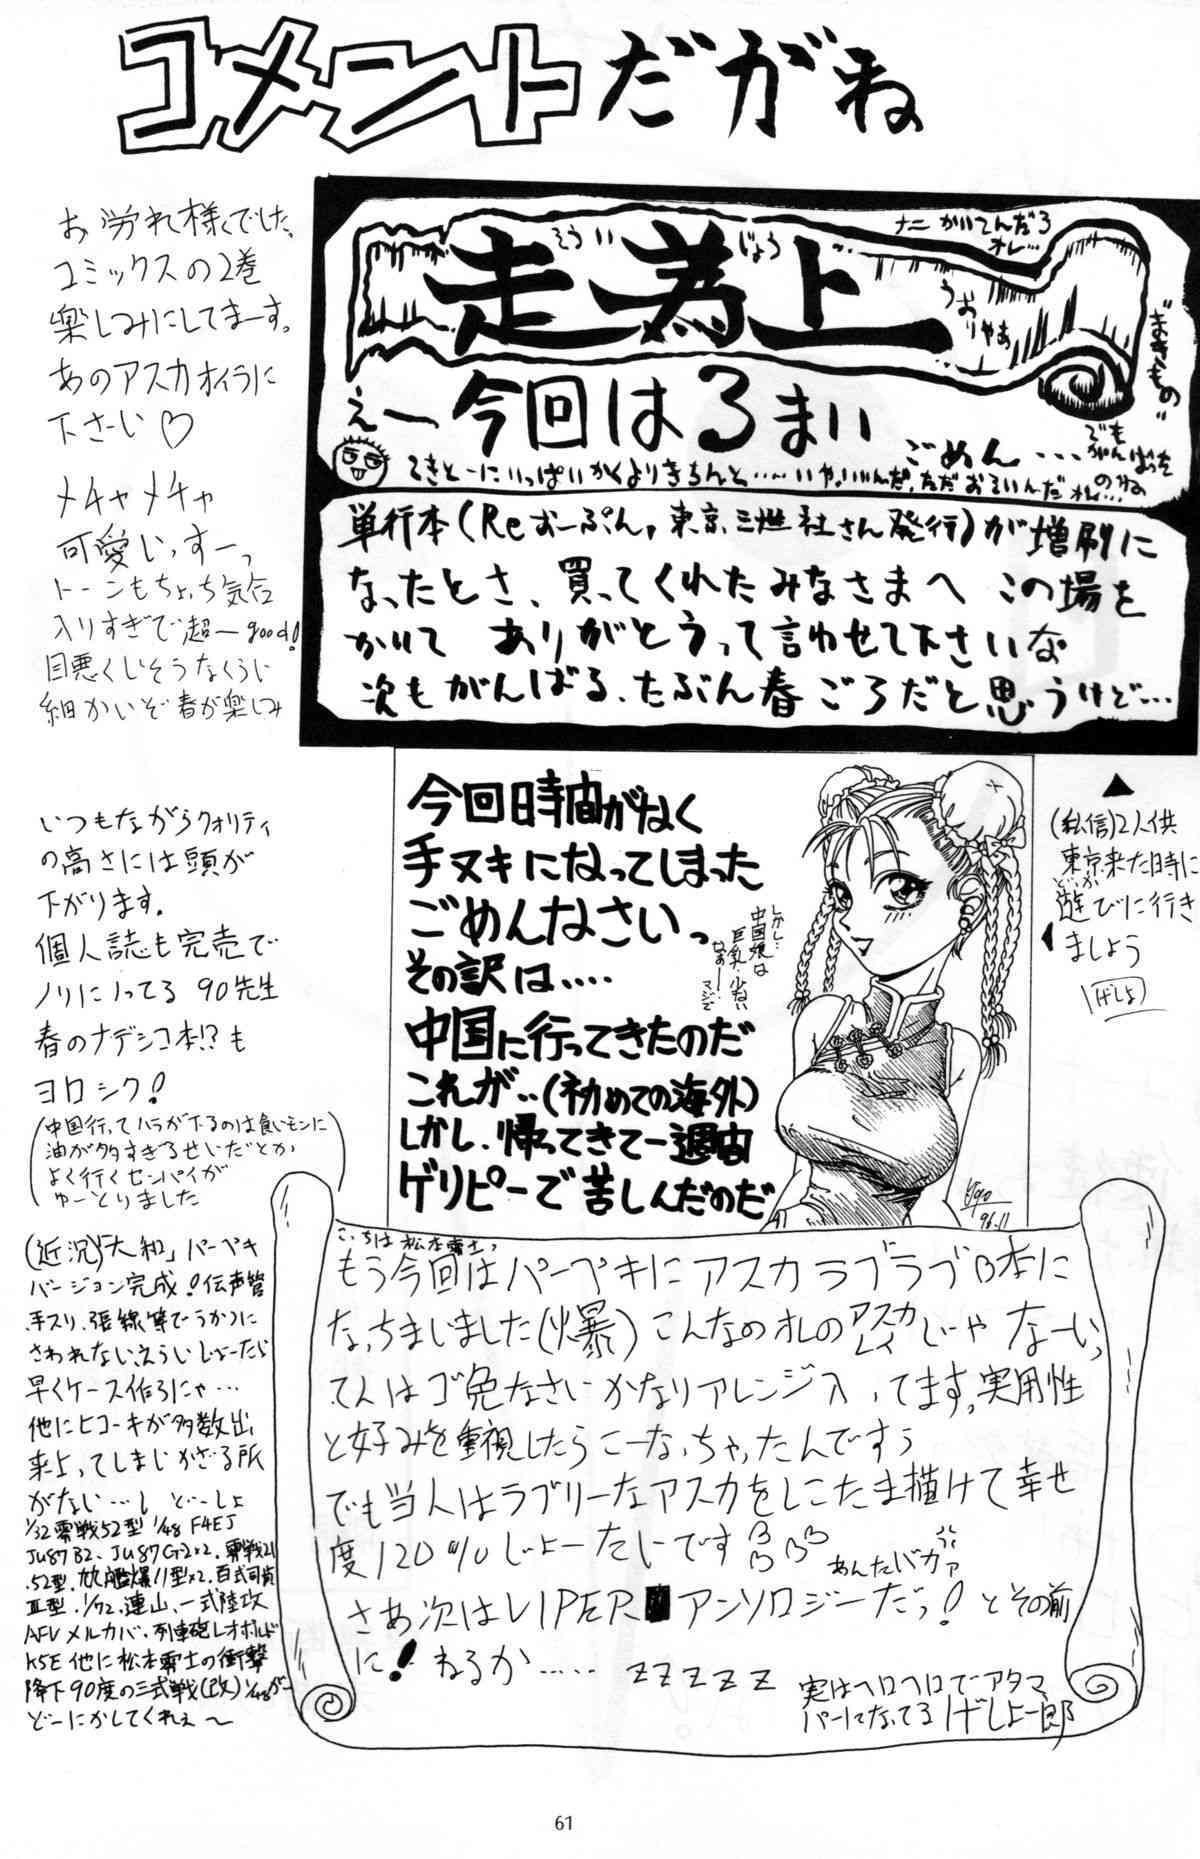 コメントだがね
お労れ様でした、
コミックスの2巻
楽しみにしてまーす。
あのアスカオイラに
下さーい♡
メチャメチャ
可愛いっすーっ
トーンもちょっち気合
入りすぎで超ーgood!
目悪くしそうなくらい
細かいぞ春が楽しみ
走為上
そう い じょう
ナニかいてんだろ
オレ…
うおりゃあ
"まきもの"
でも
がんばった
のね
えー今回はるまい
ごめん…
てきとーにいっぱいかくよりきちんと……いや、いいんだ、ただおそいんだオレ…
単行本(Reおーぷん,東京三世社さん発行)が増刷に
なったとさ、買ってくれたみなさまへ この場を
かりて ありがとうって言わせて下さいな
次もがんばる、たぶん春ごろだと思うけど…
いつもながらクオリティ
の高さには頭が
下がります。
個人誌も完売で
ノリにノってる 90先生
春のナデシコ本!?も
ヨロシク!
(中国行ってハラが下るのは食いモンに
油が多すぎるせいだとか
よく行くセンパイが
ゆーとりました)
今回時間がなく
手ヌキになってしまった
ごめんなさいっ
その訳は‥‥
中国に行ってきたのだ
これが‥(初めての海外)
しかし、帰ってきて一週間
ゲリピーで苦しんだのだ
しかし…
中国娘は
巨乳少ない
なぁー マジで
96.11
▲
(私信)2人供
東京来た時に
どっか
遊びに行き
ましょう
げしょ
(近況)「大和」パーペキ
バージョン完成!伝声管
手スリ、張線等でうかつに
さわれない、えらいじょーたい
早くケース作ろにゃ…
他にヒコーキが多数出
来上ってしまいかざる所
がない…し どーしょ
1/32零戦52型 1/48 F4EJ
JU87B2、JU87G2×2、零戦21
.52型、九九艦爆11型×2、百式司偵
Ⅲ型、1/72、連山、一式陸攻
AFVメルカバ、列車砲レオポルド
K5E他に松本零士の衝撃
降下90度の三式戦(改)1/48がー
どーにかしてくれぇ〜
こっちは松本零士っ
もう今回はパーペキにアスカラブラブB本に
なっちまいました(爆)こんなのオレのアスカ
レイ じゃなーいっ
て人はゴ免なさいかなりアレンジ入ってます。実用性
と好みを重視したらこーなっちゃったんですぅ
でも当人はラブリーなアスカをしこたま描けて幸せ
度120%じょーたいです
あんたバカァ
さあ次はVIPERアンソロジーだっ!とその前
に!ねるか……zzzzz
実はヘロヘロでアタマ
パーになってるげしょ一郎
61